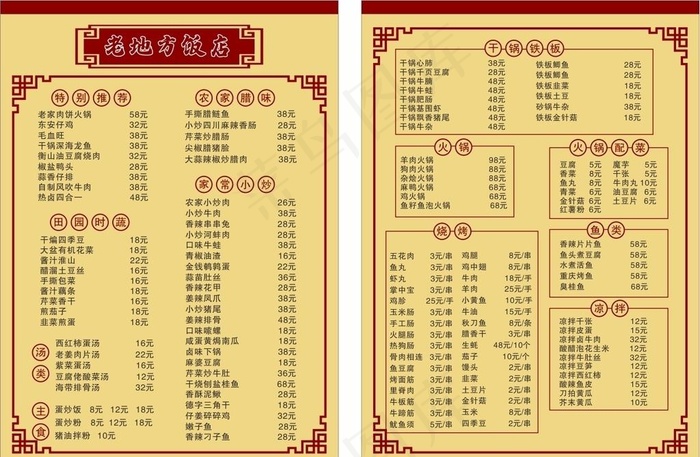 老地方饭店
特别推荐
老家肉饼火锅 58元
东安仔鸡 32元
毛血旺 38元
干锅深海龙鱼 38元
衡山油豆腐烧肉 32元
椒盐鸭头 28元
蒜香仔排 38元
自制风吹牛肉 38元
热卤四合一 48元
田园时蔬
干煸四季豆 18元
大盆有机花菜 18元
酱汁淮山 22元
醋溜土豆丝 16元
手撕包菜 16元
酱汁藕条 18元
芹菜香干 16元
煎茄子 18元
韭菜煎蛋 18元
汤类
西红柿蛋汤 16元
老姜肉片汤 22元
紫菜蛋汤 16元
豆腐佬酸菜汤 12元
海带排骨汤 32元
主食
蛋炒饭 8元 12元 18元
蛋炒粉 8元 12元 18元
猪油拌粉 10元
农家腊味
手撕腊鲢鱼 38元
小炒四川麻辣香肠 28元
芹菜炒腊肠 38元
尖椒腊猪脸 38元
大蒜辣椒炒腊肉 38元
家常小炒
农家小炒肉 26元
小炒牛肉 38元
香辣串串兔 28元
小炒河蚌肉 28元
口味牛蛙 38元
青椒油渣 16元
金钱鹌鹑蛋 22元
香辣花甲 28元
姜辣凤爪 38元
小炒猪尾 38元
姜辣排骨 48元
口味嗦螺 18元
咸蛋黄焗南瓜 18元
卤味下锅 38元
麻婆豆腐 18元
芹菜炒牛肚 36元
干烧刨盐桂鱼 68元
香酥泥鳅 28元
德字三角干 18元
仔姜碎碎鸡 32元
嫩子鱼 28元
香辣刁子鱼 28元
干锅铁板
干锅心肺 38元
干锅千页豆腐 28元
干锅牛腩 48元
干锅牛蛙 48元
干锅肥肠 48元
干锅基围虾 48元
干锅飘香猪尾 48元
干锅牛杂 48元
铁板鲫鱼 28元
铁板鲫鱼 28元
铁板韭菜 18元
铁板土豆 18元
砂锅牛杂 38元
铁板金针菇 18元
火锅
羊肉火锅 98元
狗肉火锅 98元
杂烩火锅 88元
麻鸭火锅 68元
鸡火锅 68元
鱼籽鱼泡火锅 68元
火锅配菜
豆腐 5元 魔芋 5元
香菜 8元 千张 5元
鱼丸 8元 牛肉丸 10元
青菜 5元 油豆腐 6元
金针菇 6元 土豆片 6元
红薯粉 6元
鱼类
香辣片片鱼 58元
鱼头煮豆腐 58元
水煮活鱼 58元
重庆烤鱼 58元
臭桂鱼 68元
烧烤
五花肉 3元/串 鸡腿 8元/串
鱼丸 3元/串 鸡中翅 8元/串
虾丸 3元/串 牛肉 3元/串
掌中宝 3元/串 羊肉 25元/手
鸡胗 25元/手 小黄鱼 10元/手
玉米肠 3元/串 牛油 15元/手
手工肠 3元/串 秋刀鱼 8元/条
火腿肠 3元/串 腊香干 3元/串
热狗肠 3元/串 生蚝 48元/10个
骨肉相连 3元/串 茄子 10元/一个
鱼豆腐 3元/串 馒头 2元/串
烤面筋 3元/串 韭菜 2元/串
里脊肉 3元/串 土豆片 2元/串
牛板筋 3元/串 金针菇 2元/串
牛蹄筋 3元/串 玉米 8元/串
鱿鱼须 5元/串 四季豆 2元/串
凉拌
凉拌千张 12元
凉拌皮蛋 15元
凉拌卤牛肉 32元
酸醋泡花生米 12元
凉拌牛肚丝 32元
凉拌豆笋 12元
凉拌西红柿 12元
酸辣鱼皮 15元
刀拍黄瓜 10元
芥末黄瓜 10元